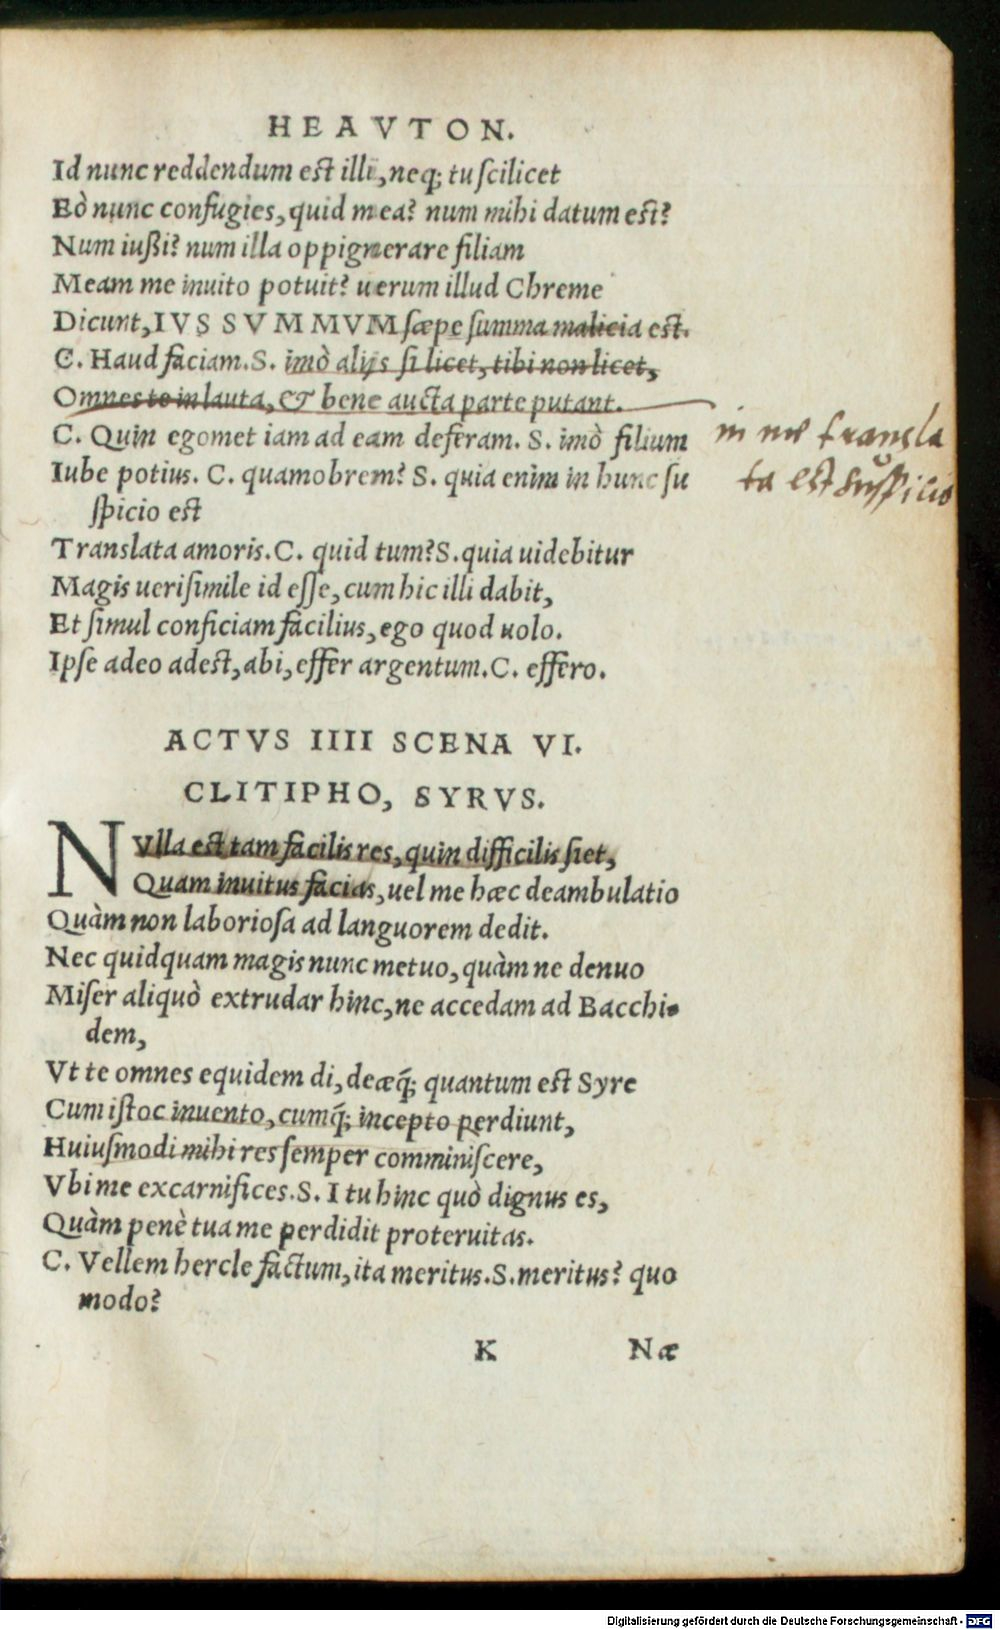 HEAVTON.
Id nunc reddendum est illi, neq; tu scilicet
Eò nunc confugies, quid mea? num mihi datum est?
Num iußi? num illa oppignerare filiam
Meam me inuito potuit? uerum illud Chreme
Dicunt, IVS SVMMVM sæpe summa malicia est.
C. Haud faciam. S. imò alijs si licet, tibi non licet,
Omnes te in lauta, & bene aucta parte putant.
C. Quin egomet iam ad eam deferam. S. imò filium
in me transla
Iube potius. C. quamobrem? S. quia enim in hunc su
ta est suspicio
spicio est
Translata amoris. C. quid tum? S. quia uidebitur
Magis uerisimile id esse, cum hic illi dabit,
Et simul conficiam facilius, ego quod uolo.
Ipse adeo adest, abi, effer argentum. C. effero.
ACTVS IIII SCENA VI.
CLITIPHO, SYRVS.
NVlla est tam facilis res, quin difficilis siet,
Quam inuitus facias, uel me hæc deambulatio
Quàm non laboriosa ad languorem dedit.
Nec quidquam magis nunc metuo, quàm ne denuo
Miser aliquò extrudar hinc, ne accedam ad Bacchi-
dem,
Vt te omnes equidem di, deæq́; quantum est Syre
Cum istoc inuento, cumq́; incepto perdiunt,
Huiusmodi mihi res semper comminiscere,
Vbi me excarnifices. S. I tu hinc quò dignus es,
Quàm penè tua me perdidit proteruitas.
C. Vellem hercle factum, ita meritus. S. meritus? quo
modo?
K Næ
Digitalisierung gefördert durch die Deutsche Forschungsgemeinschaft - DFG